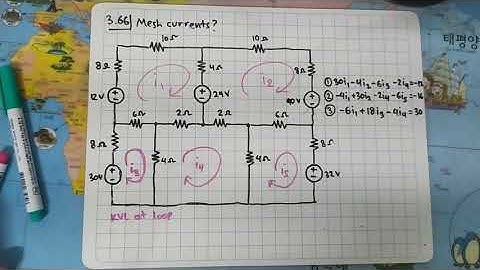 3.66 Mesh currents?
태평양
10Ω 10Ω
8Ω 4Ω 8Ω
i₁ i₂
12V 24V 40V
① 30i₁-4i₂-6i₃-2i₄=-12
② -4i₁+30i₂-2i₄-6i₅=-16
③ -6i₁+18i₃-4i₄=30
6Ω 2Ω 2Ω 6Ω
8Ω 4Ω 4Ω 8Ω
30V i₃ i₄ i₅ 32V
KVL at loop